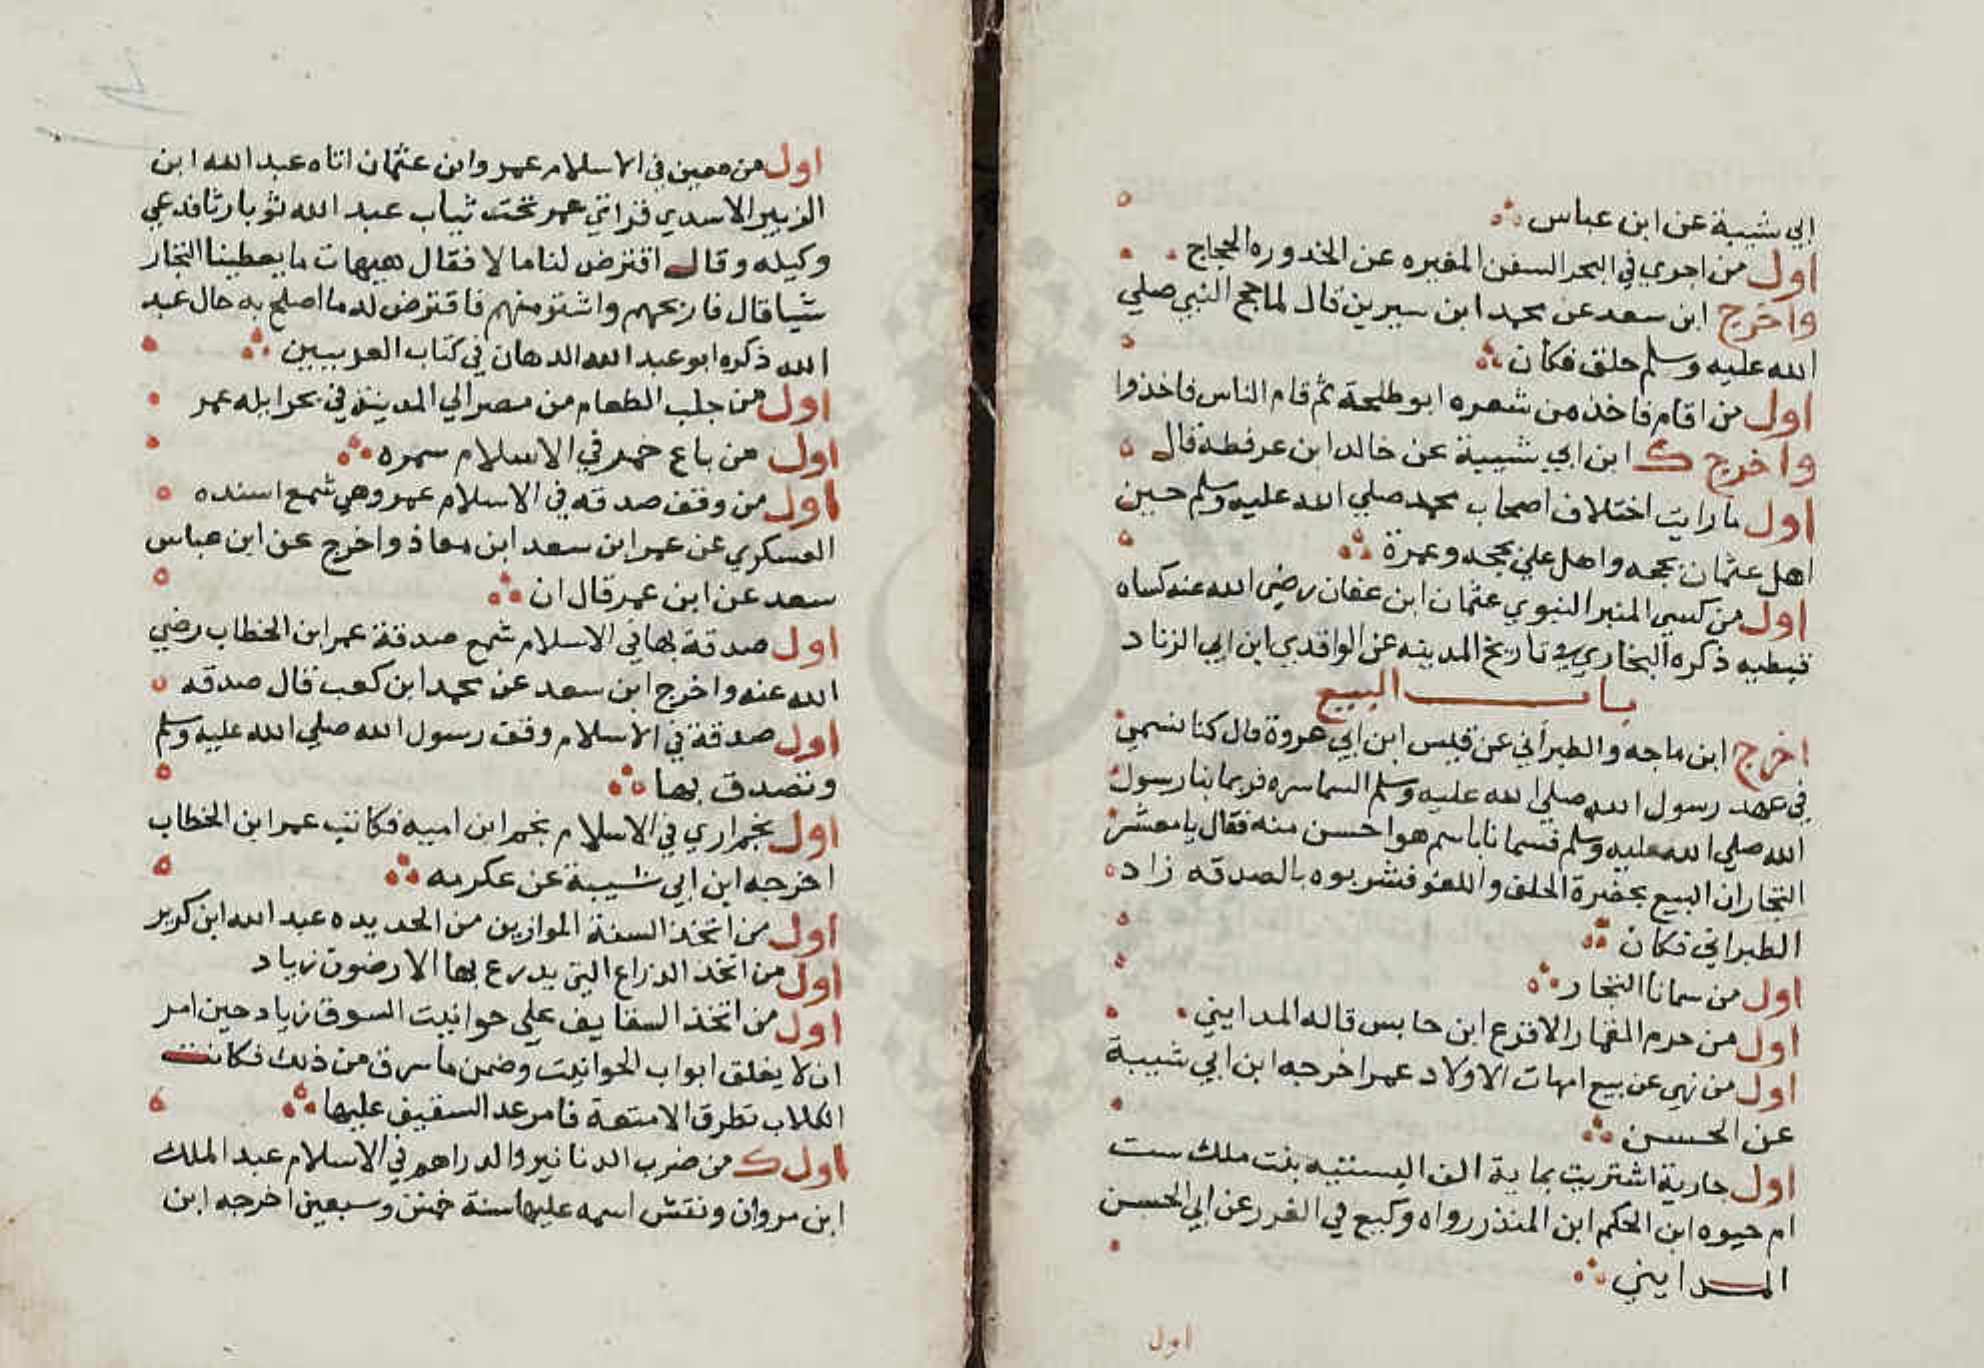 ابي شيبة عن ابن عباس
اول من اجري في البحر السفن المقيره عن الخدوره الحجاج
واخرج ابن سعد عن محمد ابن سيرين قال لما حج النبي صلي
الله عليه وسلم حلق فكان
اول من اقام فاخذ من شعره ابو طلحة ثم قام الناس فاخذوا
واخرج ك ابن ابي شيبة عن خالد ابن عرفطة قال
اول ما رايت اختلاف اصحاب محمد صلي الله عليه وسلم حين
اهل عثمان بحجه واهل علي بحجه وعمرة
اول من كسي المنبر النبوي عثمان ابن عفان رضي الله عنه كساه
قبطيه ذكره البخاري في تاريخ المدينه عن الواقدي ابن ابي الزناد
باب البيع
اخرج ابن ماجه والطبراني عن قيس ابن ابي عروة قال كنا نسمي
في عهد رسول الله صلي الله عليه وسلم السماسره فربما بنا رسول
الله صلي الله عليه وسلم فسمانا باسم هو احسن منه فقال يا معشر
التجار ان البيع بحضرة الحلف واللغو فشربوه بالصدقه زاد
الطبراني فكان
اول من سمانا التجار
اول من حرم القمار الاقرع ابن حابس قاله المدايني
اول من نهي عن بيع امهات الاولاد عمر اخرجه ابن ابي شيبة
عن الحسن
اول جارية اشتريت بماية الف بنت ملك ست
ام حيوه ابن الحكم ابن المنذر رواه وكيع في الغرر عن ابي الحسن
المدايني
اول
اول من معين في الاسلام عمرو ابن عثمان اتاه عبد الله ابن
الزبير الاسدي فراني عمر تحت ثياب عبد الله ثوبا رثا فدعي
وكيله وقال اقترض لنا مالا فقال هيهات ما يعطينا التجار
شيا قال فاربحهم واشتو منهم فاقترض له ما اصلح به حال عبد
الله ذكره ابو عبد الله الدهان في كتاب العربيين
اول من جلب الطعام من مصر الي المدينة في بحر ايله عمر
اول من باع خمر في الاسلام سمره
اول من وقف صدقه في الاسلام عمر وهي شمع اسنده
العسكري عن عمر ابن سعد ابن معاذ واخرج عن ابن عباس
سعد عن ابن عمر قال ان
اول صدقة بها في الاسلام شمع صدقة عمر ابن الخطاب رضي
الله عنه واخرج ابن سعد عن محمد ابن كعب قال صدقه
اول صدقة في الاسلام وقف رسول الله صلي الله عليه وسلم
وتصدق بها
اول بخمراري في الاسلام بخمر ابن اميه فكاتب عمر ابن الخطاب
اخرجه ابن ابي شيبة عن عكرمه
اول من اتخذ السنة الموازين من الحديده عبد الله ابن كريز
اول من اتخذ الذراع التي يدرع بها الارضون زياد
اول من اتخذ السقايف علي حوانيت السوق زياد حين امر
ان لا يغلق ابواب الحوانيت وضمن ما سرق من ذلك فكانت
الكلاب تطرق الامتعة فامر عد السقيف عليها
اول ك من ضرب الدنانير والدراهم في الاسلام عبد الملك
ابن مروان ونقش اسمه عليها سنة خمس وسبعين اخرجه ابن